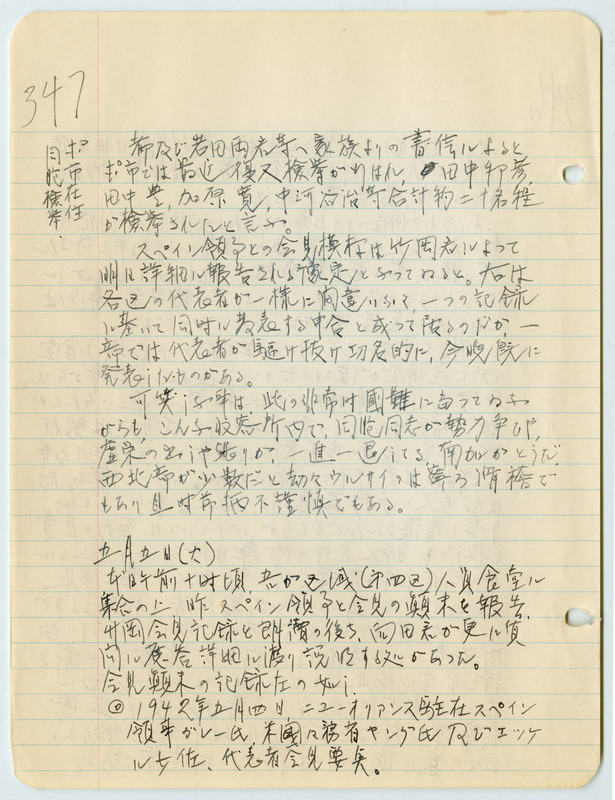 347
ポ市在住
同胞検挙.
都及び若田両君等へ家族よりの書信によると
ポ市では最近復又検挙が行はれ、田中
田中豊、加原寛、中河 等合計約二十名程
が検挙されたと言ふ。
スペイン領事との会見模様は竹岡君によって
明日詳細に報告される予定となってゐると。右は
各区の代表者が一様に間違いなく、一つの記録
に基いて同時に発表する申合と成って居るのだが、一
部では代表者が駆け抜け功名的に、今晩既に
発表したものがある。
可笑しな事は、此の非常時国難に当ってゐな
がらも、こんな収容所内で、同胞同志が勢力争ひや、
虚栄の が、一進一退してる。南加がどうだ
西北部が少数だと 寧ろ滑稽で
もあり且時節柄不謹慎でもある。
五月五日(火)
午前十時頃、吾が区域(第四区)人員食堂に
集合の上、昨スペイン領事と会見の顛末を報告、
竹岡会見記録を朗読の後ち、向田君が更に質
問に応答詳細に渡り説明する処があった。
会見顛末の記録左の如し.
◎ 1942年五月四日、ニューオリアンス駐在スペイン
領事ガレー氏、米国 ヤング氏及びエッケ
ル少佐、代表者会見要矣。